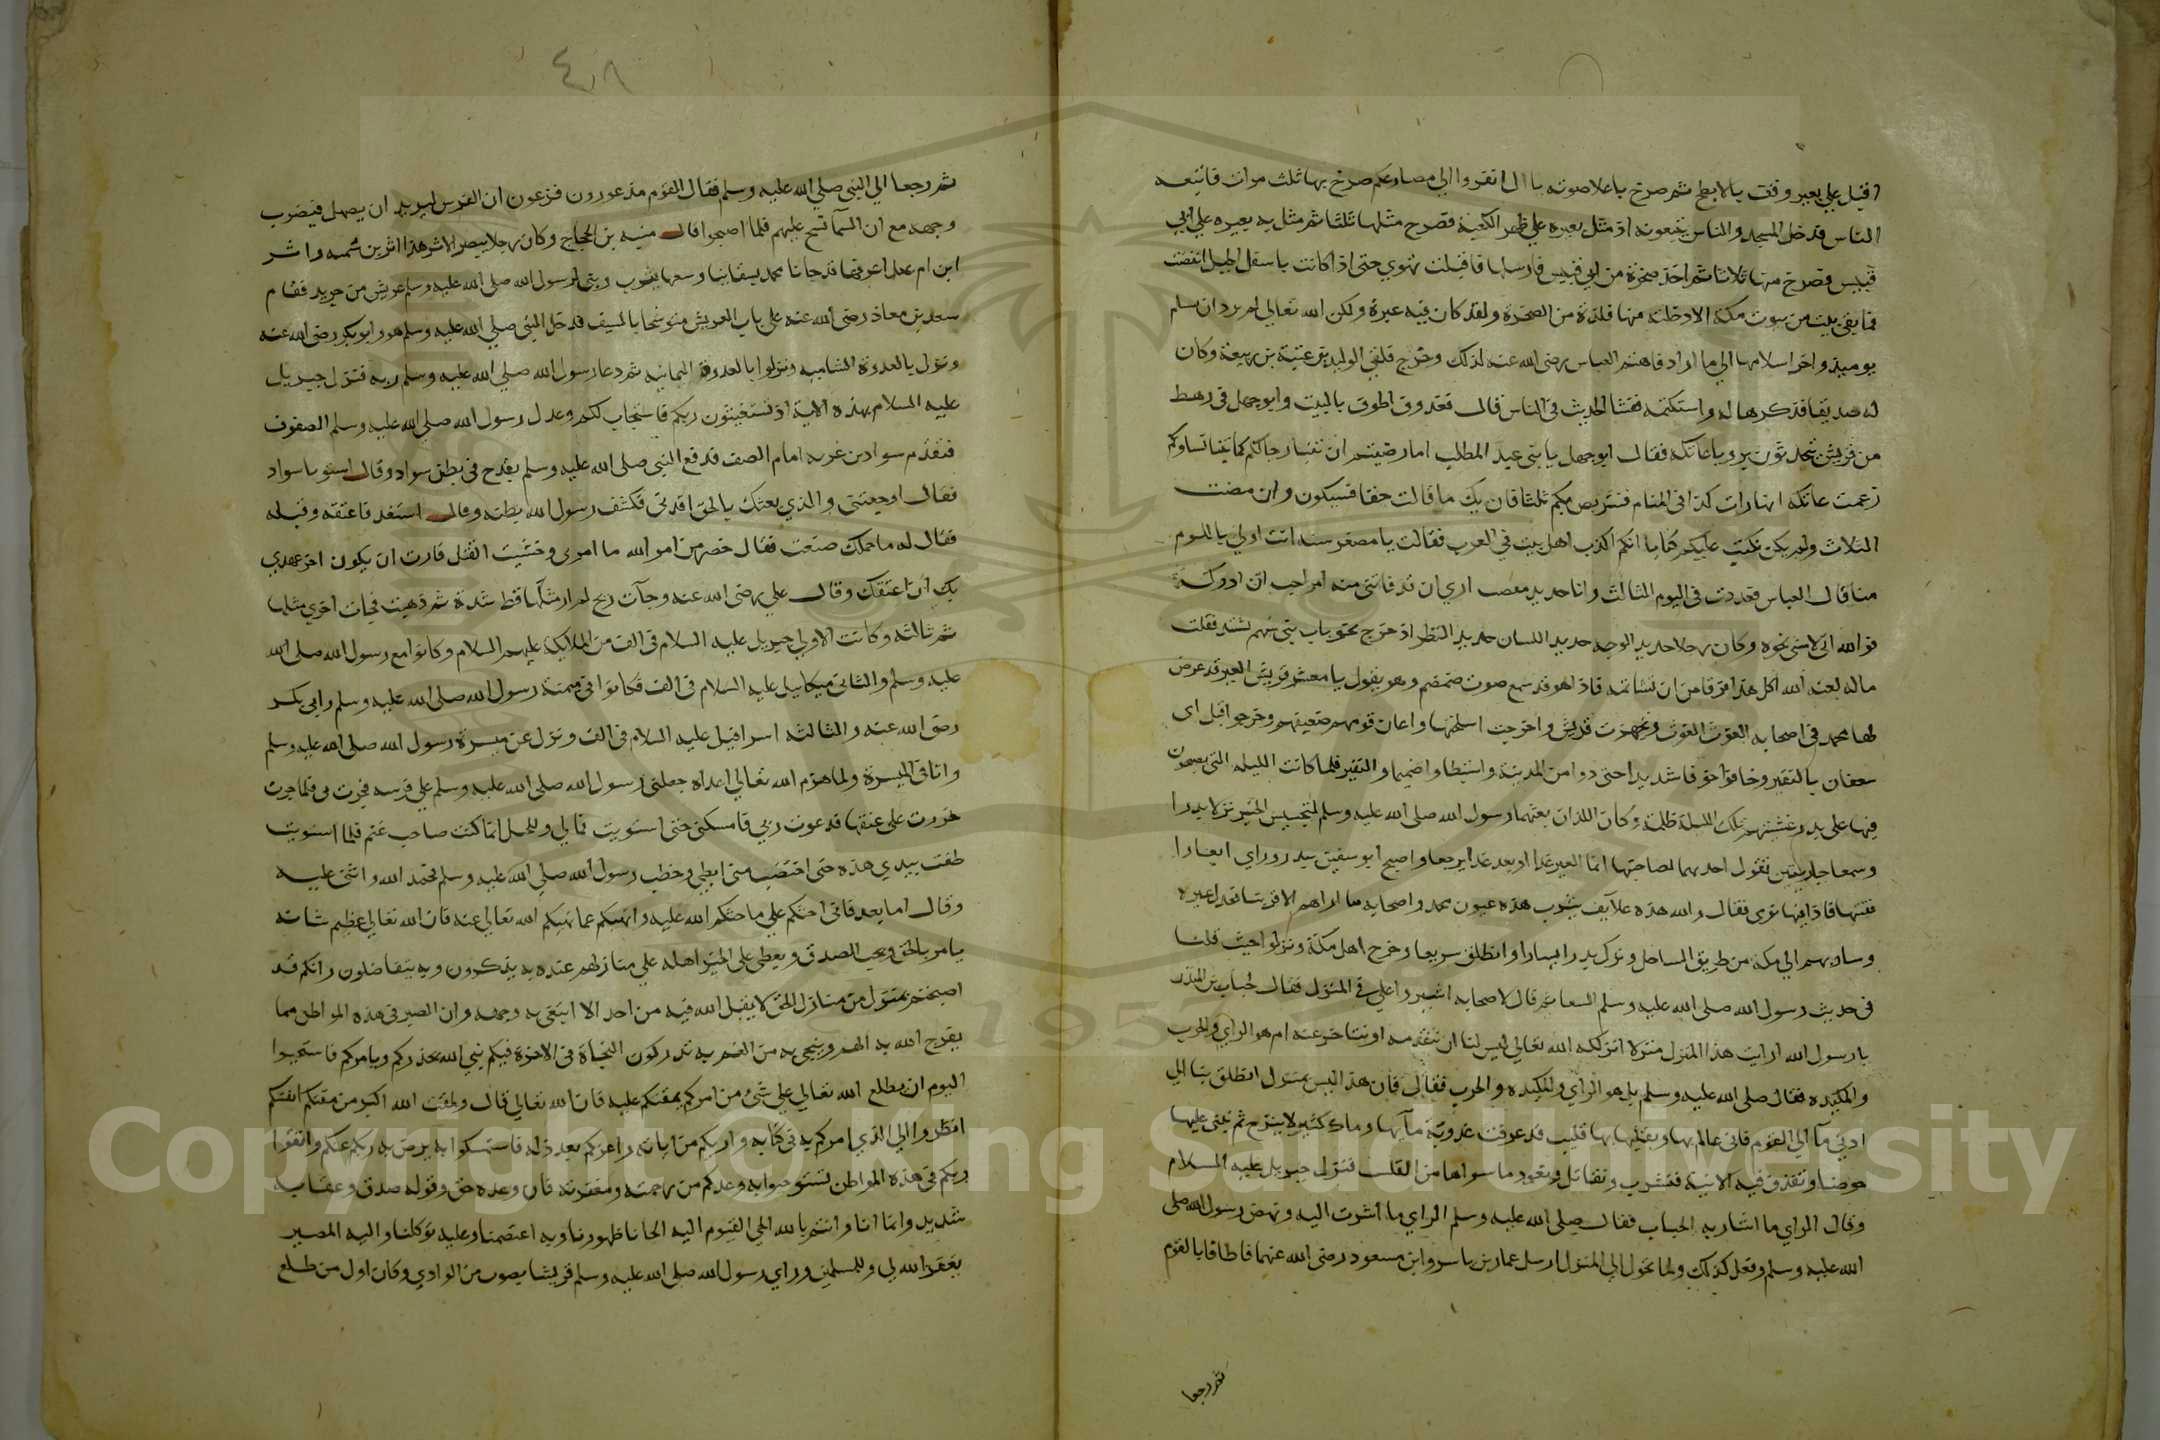 اقبل علي بعير وقف بالابطح ثم صرخ باعلا صوته يا ال انفروا الي مصارعكم صرخ بها ثلث مرات فاتبعه
الناس فدخل المسجد والناس يتبعونه اذ مثل بعيره علي ظهر الكعبة فصرخ مثلها ثلثا ثم مثل به بعيره علي ابي
قبيس فصرخ منها ثلاثا ثم اخذ صخرة من ابي قبيس فارسلها فاقبلت تهوي حتى اذا كانت باسفل الجبل انفضت
فما بقي بيت من بيوت مكة الا دخلته منها فلذة من الصخرة ولقد كان فيه عبرة ولكن الله تعالي لم يرد ان نسلم
يوميذ واخر اسلامها الي ما اراد فاهتم العباس رضي الله عنه لذلك وخرج فلقي الوليد بن عتبة بن ربيعة وكان
له صديقا فذكرها له واستكتمه ففشا الحديث في الناس قال فغدوت اطوف بالبيت وابو جهل في رهط
من قريش يتحدثون برويا عاتكه فقال ابو جهل يا بني عبد المطلب اما رضيتم ان تنبا رجالكم كما تنبا نساوكم
زعمت عاتكة انها رات كذا في المنام فنتربص بكم ثلثا فان يك ما قالت حقا فسيكون وان مضت
الثلاث ولم يكن نكتب عليكم كتابا انكم اكذب اهل بيت في العرب فقالت يا مصفر استه انت اولي باللوم
منا قال العباس فغدوت في اليوم الثالث وانا حديد مغضب اري ان قد فاتني منه امر احب ان ادركه
فوالله اني لامشي نحوه وكان رجلا حديد الوجه حديد اللسان حديد النظر اذ خرج نحو باب بني سهم يشتد فقلت
ماله لعنه الله اكل هذا فرقا من ان نشاتمه فاذا هو قد سمع صوت ضمضم وهو يقول يا معشر قريش العير قد عرض
لها محمد في اصحابه الغوث الغوث وتجهزت قريش واخرجت اسلحتها واعان قويهم ضعيفهم وخرجوا اقبل ابى
سفيان بالنفير وخافوا خوفا شديدا حتى دنوا من المدينة واستبطاوا ضمضما والنفير فلما كانت الليله التي يصبحون
فيها علي بدر غشيتهم تلك الليلة ظلمة وكان اللذان بعثهما رسول الله صلى الله عليه وسلم لتجسيس الخبر نزلا بدرا
وسمعا جاريتين تقول احديهما لصاحبتها انما العير غدا او بعد غدا يرجعا واصبح ابو سفين ببدر وراي ابعارا
ففتها فاذا فيها نوى فقال والله هذه علايف يثرب هذه عيون محمد واصحابه ما اراهم الا قريبا
وسار بهم الي مكة من طريق الساحل وترك بدر اليسارا وانطلق سريعا وخرج اهل مكة ونزلوا حيث قلنا
في حديث رسول الله صلى الله عليه وسلم ثم قال لاصحابه اشيروا علي في المنزل فقال حباب بن المنذر
يا رسول الله ارايت هذا المنزل منزلا انزلكه الله تعالي ليس لنا ان نتقدمه او نتاخر عنه ام هو الراي والحرب
والمكيده فقال صلى الله عليه وسلم بل هو الراي والمكيده والحرب فقال فان هذا ليس بمنزل انطلق بنا الي
ادني ماء الي القوم فاني عالم بها وبقلبها بها قليب قد عرفت عذوبة مآيها وماء كثير لا ينزح ثم نبني عليها
حوضا ونقذف فيه الانية فنشرب ونقاتل ونعور ما سواها من القلب فنزل جبريل عليه السلام
وقال الراي ما اشار به الحباب فقال صلى الله عليه وسلم الراي ما اشرت اليه ونهض رسول الله صلى
الله عليه وسلم وفعل كذلك ولما تحول الي المنزل ارسل عمار بن ياسر وابن مسعود رضي الله عنهما فاطافا بالقوم
ثم رجعا
٤٨
ثم رجعا الي النبي صلى الله عليه وسلم فقال القوم مذعورون فزعون ان الفرس ليريد ان يصهل فيضرب
وجهه مع ان السمآ تسح عليهم فلما اصبحوا قال منبه بن الحجاج وكان رجلا يبصر الاثر هذا اثر بن سميه واثر
ابن ام عبد اعرفهما قد جانا محمد بسفهاينا وسفها يثرب وبني لرسول الله صلى الله عليه وسلم عريش من جريد فقام
سعد بن معاذ رضي الله عنه على باب العريش متوشحا بالسيف فدخل النبي صلى الله عليه وسلم هو وابو بكر رضي الله عنه
ونزل بالعدوة الشاميه ونزلوا بالعدوة اليمانيه ثم دعا رسول الله صلى الله عليه وسلم ربه فنزل جبريل
عليه السلام بهذه الاية اذ تستغيثون ربكم فاستجاب لكم وعدل رسول الله صلى الله عليه وسلم الصفوف
فتقدم سواد بن غزيه امام الصف فدفع النبي صلى الله عليه وسلم بقدح في بطن سواد وقال استو يا سواد
فقال اوجعتني والذي بعثك بالحق اقدني فكشف رسول الله بطنه وقال استقد فاعتنقه وقبله
فقال له ما حملك صنعت فقال حضر من امر الله ما امرى وخشيت القتل فاردت ان يكون اخر عهدي
بك ان اعتنقك وقال علي رضي الله عنه وجآت ريح لم ار مثلها قط شدة ثم ذهبت فجات اخري مثلها
ثم ثالثه وكانت الاولي جبريل عليه السلام في الف من الملايكة عليهم السلام وكانوا مع رسول الله صلى الله
عليه وسلم والثاني ميكاييل عليه السلام في الف فكانوا في ميمنة رسول الله صلى الله عليه وسلم وابي بكر
رضي الله عنه والثالثه اسرافيل عليه السلام في الف ونزل عن ميسرة رسول الله صلى الله عليه وسلم
وانا في الميسرة ولما هزم الله تعالي اعداه جعلني رسول الله صلى الله عليه وسلم علي فرسه فجرت بي فلما جرت
خررت على عنقها فدعوت ربي فامسكني حتى استويت فما لي وللخيل انما كنت صاحب غنم فلما استويت
طفت بيدي هذه حتى اختضب مني ابطي وخطب رسول الله صلى الله عليه وسلم فحمد الله واثنى عليه
وقال اما بعد فاني احثكم علي ما حثكم الله عليه وانهيكم عما نهيكم الله تعالي عنه فان الله تعالي عظيم شانه
يامر بالحق ويحب الصدق ويعطي علي الخير اهله علي منازلهم عنده به يذكرون وبه يتفاضلون وانكم قد
اصبحتم بمنزل من منازل الحق لا يقبل الله فيه من احد الا ما ابتغي به وجهه وان الصبر في هذه المواطن مما
يفرج الله به الهم وينجي به من الغم به تدركون النجاة في الاخرة فيكم نبي الله يحذركم ويامركم فاستحيوا
اليوم ان يطلع الله تعالي علي شئ من امركم يمقتكم عليه فان الله تعالي قال ولمقت الله اكبر من مقتكم انفسكم
انظروا الي الذي امركم به في كتابه واريكم من اياته واعزكم بعد ذله فاستمسكوا به يرض به ربكم عنكم وانقوا
ربكم في هذه المواطن تستوجبوا به وعدكم من رحمته ومغفرته فان وعده حق وقوله صدق وعقابه
شديد وانما انا وانتم بالله الحي القيوم اليه الجانا ظهورنا وبه اعتصمنا وعليه توكلنا واليه المصير
يغفر الله لي وللمسلمين وراي رسول الله صلى الله عليه وسلم قريشا يصوب من الوادي وكان اول من طلع
Copyright © King Saud University
1957